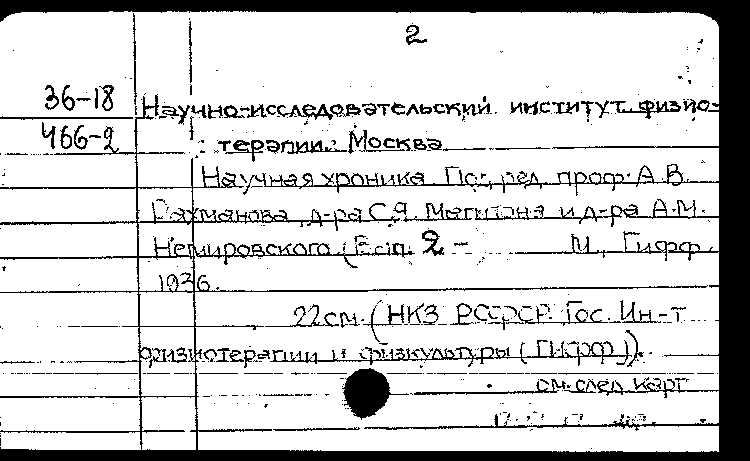 2
36-18 Научно-исследовательский институт физио-
466-2 терапии. Москва
Научная хроника. Под ред. проф. А.В.
Рахманова, д-ра С.Я. Магитона и д-ра А.М.
Немировского. (Вып. 2 - М., Гифф.
1936.
22 см. (НКЗ РСФСР. Гос. Ин-т
физиотерапии и физкультуры (ГИФФ)).
см. след. карт